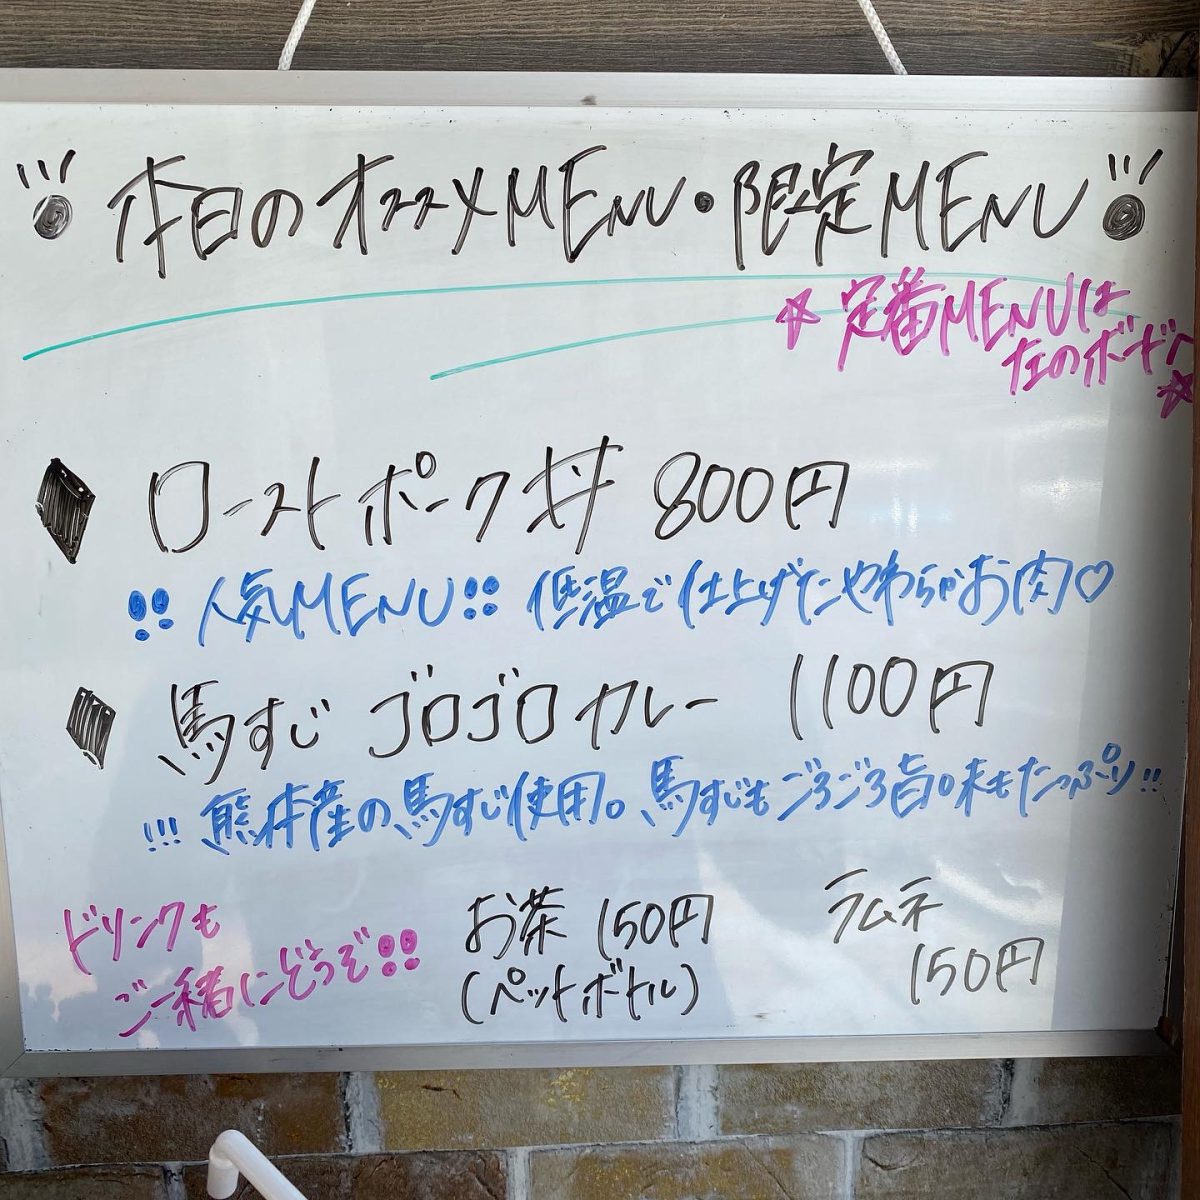 本日のオススメMENU・限定MENU
☆定番MENUは
左のボードへ☆
◆ローストポーク丼 800円
!!人気MENU!! 低温で仕上げたやわらかお肉♡
◆馬すじゴロゴロカレー 1100円
!!!熊本産の馬すじ使用。馬すじもごろごろ旨味もたっぷり!!
ドリンクも
ご一緒にどうぞ!!
お茶 150円
(ペットボトル)
ラムネ
150円